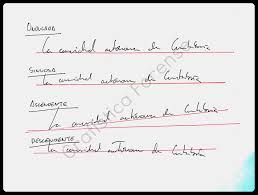 ONDULADA
La comunidad autónoma de Cantabria
SINUOSA
La comunidad autónoma de Cantabria
ASCENDENTE
La comunidad autónoma de Cantabria
DESCENDENTE
La comunidad autónoma de Cantabria
Grafística Forense